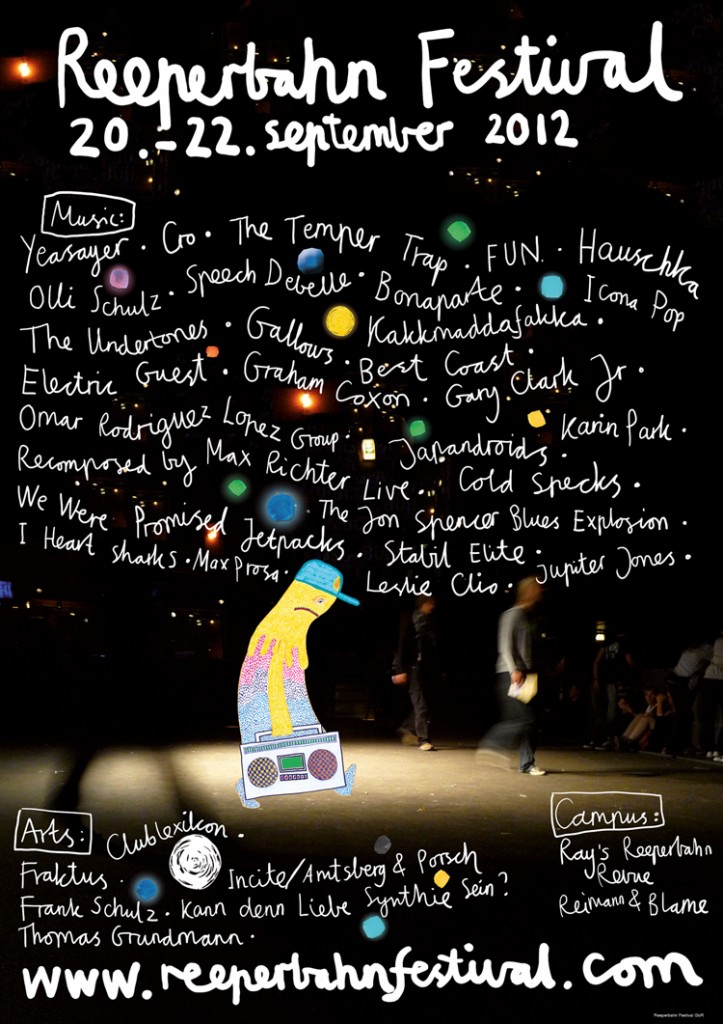 Reeperbahn Festival
20.-22. september 2012
Music:
Yeasayer · Cro · The Temper Trap · FUN. · Hauschka
Olli Schulz · Speech Debelle · Bonaparte · Icona Pop
The Undertones · Gallows · Kakkmaddafakka ·
Electric Guest · Graham Coxon · Best Coast · Gary Clark Jr ·
Omar Rodriguez Lopez Group · Japandroids · Karin Park ·
Recomposed by Max Richter Live · Cold Specks ·
We Were Promised Jetpacks · The Jon Spencer Blues Explosion ·
I Heart sharks · Max Prosa · Stabil Elite ·
Leslie Clio · Jupiter Jones ·
Arts: Clublexikon ·
Fraktus · Incite/Amtsberg & Porsch
Frank Schulz · Kann denn Liebe Synthie Sein?
Thomas Grundmann ·
Campus:
Ray's Reeperbahn
Revue
Reimann & Blame
www.reeperbahnfestival.com
Reeperbahn Festival GbR